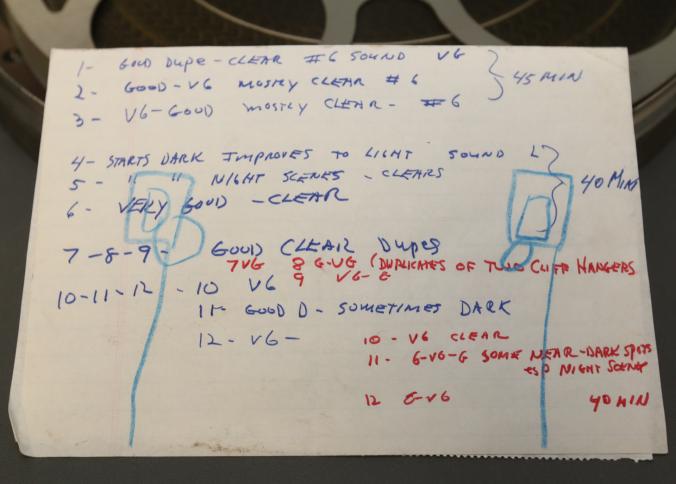 1- GOOD DUPE - CLEAR #6 SOUND VG
2- GOOD-VG MOSTLY CLEAR #6
45 MIN
3- VG-GOOD MOSTLY CLEAR - #6
4- STARTS DARK IMPROVES TO LIGHT SOUND L
5- " " NIGHT SCENES - CLEARS
40 MIN
6- VERY GOOD - CLEAR
7-8-9- GOOD CLEAR DUPES
7 VG 8 G-VG (DUPLICATES OF TWO CLIFF HANGERS
9 VG-G
10-11-12 - 10 VG
11- GOOD D- SOMETIMES DARK
12- VG-
10- VG CLEAR
11- G-VG-G SOME NEAR-DARK SPOTS
ESP NIGHT SCENE
12 G-VG 40 MIN